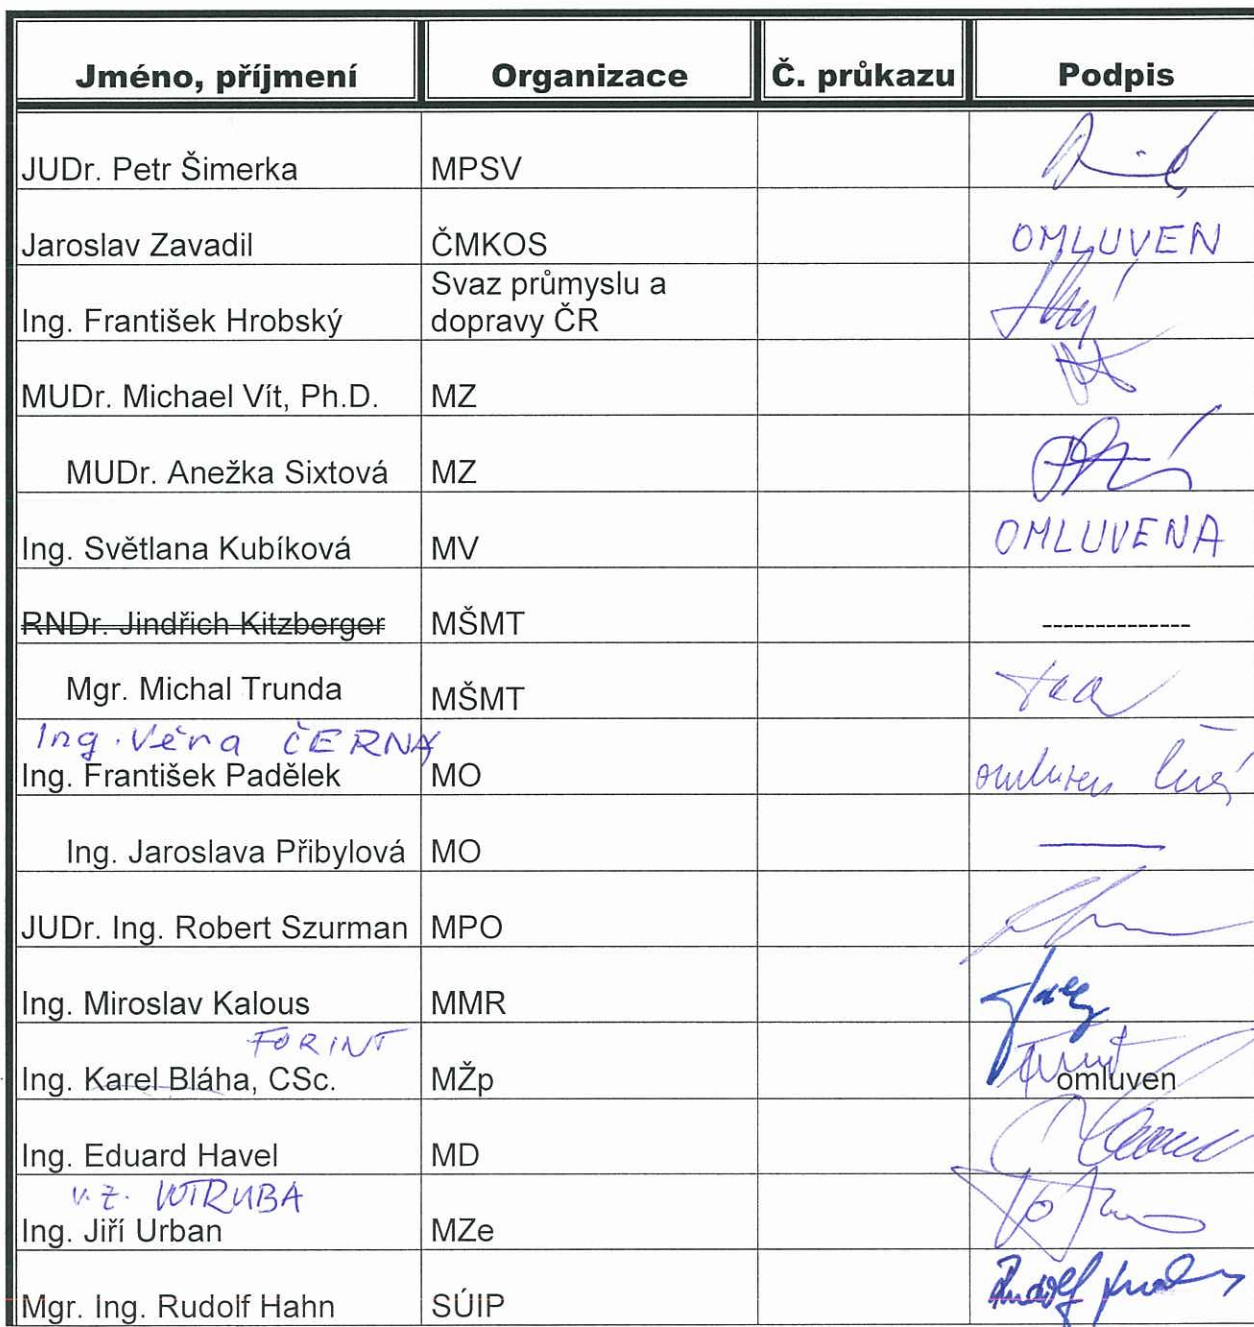 Jméno, příjmení Organizace Č. průkazu Podpis
JUDr. Petr Šimerka MPSV
Jaroslav Zavadil ČMKOS OMLUVEN
Svaz průmyslu a
Ing. František Hrobský dopravy ČR
MUDr. Michael Vít, Ph.D. MZ
MUDr. Anežka Sixtová MZ
Ing. Světlana Kubíková MV OMLUVENA
RNDr. Jindřich Kitzberger MŠMT --------------
Mgr. Michal Trunda MŠMT
Ing. Věra ČERNÁ
Ing. František Padělek MO omluven
Ing. Jaroslava Přibylová MO
JUDr. Ing. Robert Szurman MPO
Ing. Miroslav Kalous MMR
FORINT
Ing. Karel Bláha, CSc. MŽp omluven
Ing. Eduard Havel MD
v.z. VOTRUBA
Ing. Jiří Urban MZe
Mgr. Ing. Rudolf Hahn SÚIP Rudolf